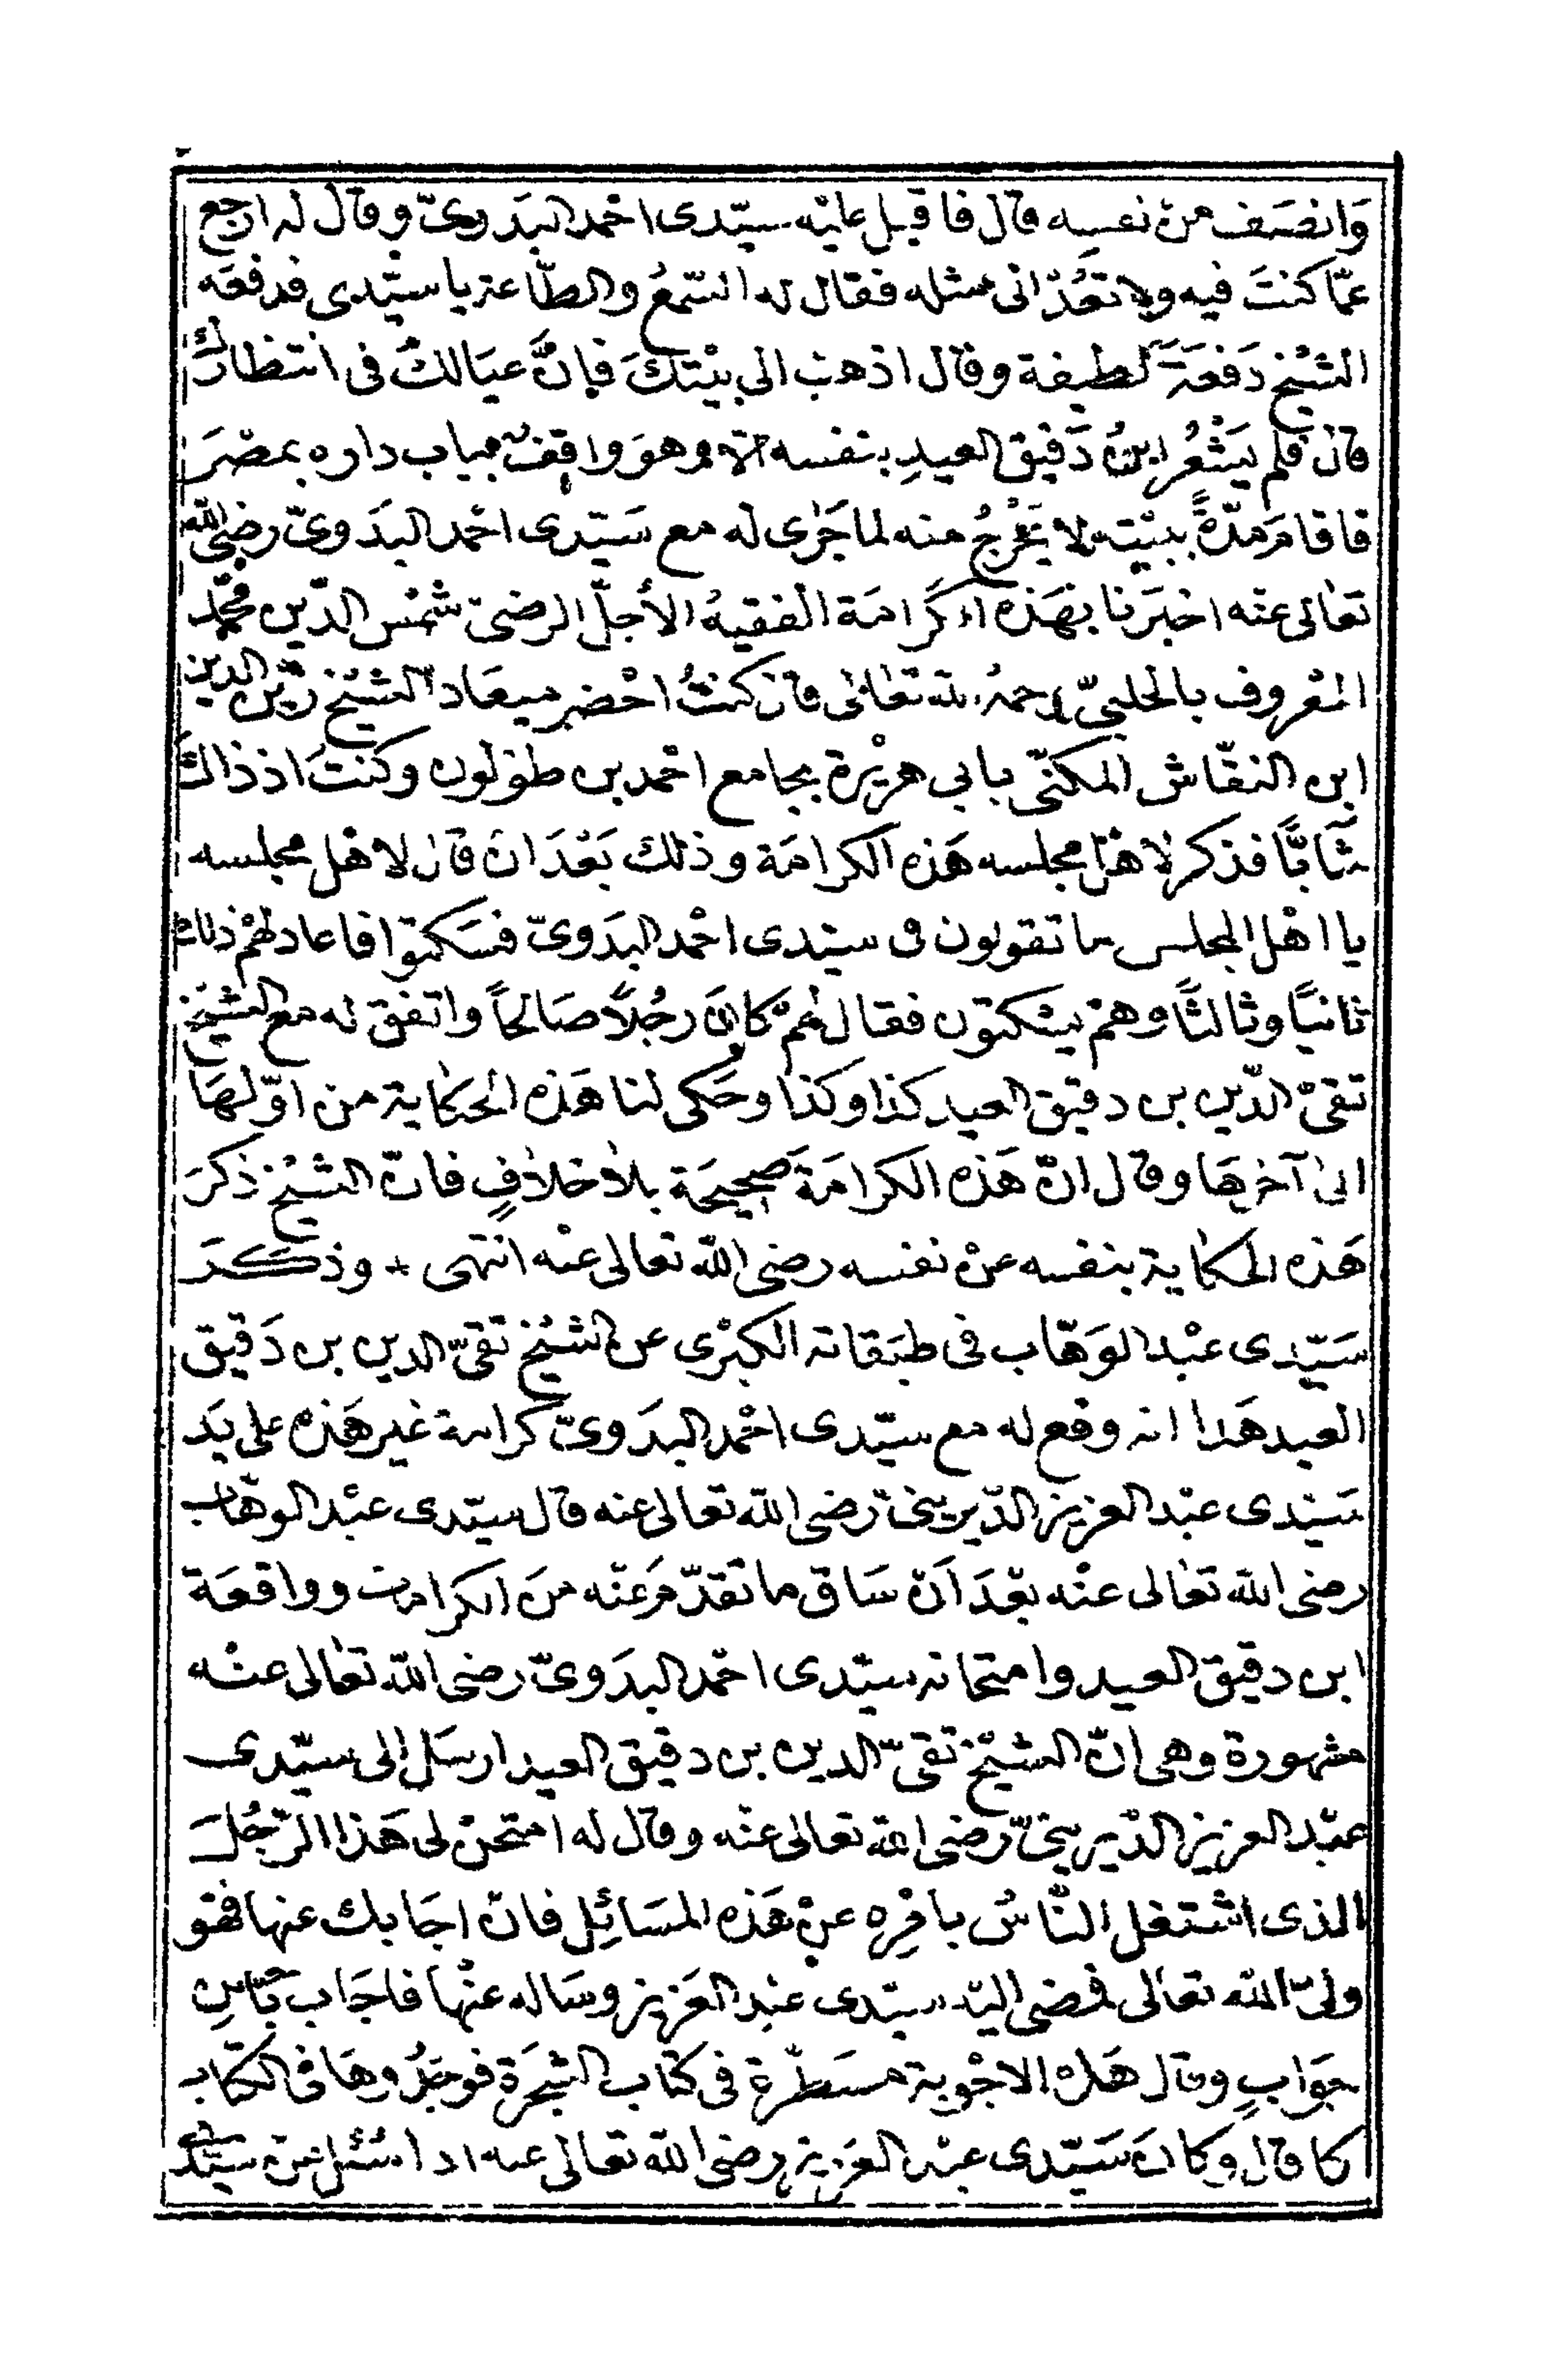 وَانصَف من نفسِه قال فاقبل عليْه سيّدى احْمد البَدوىّ وقال له ارجع
عمّا كنتَ فيه ولا تعُدْ الى مثله فقال له السّمعُ والطّاعة يا سيّدى فدفعَه
الشيْخ دَفعَةً لطيفة وقال اذهبْ الى بيْتكَ فإنَّ عيَالكَ فى انتظارك
قال فلم يَشْعُر ابنُ دَقيق العيدِ بنفسه الا وهوَ واقِفٌ بباب داره بمصْرَ
فاقامَ مدّةً ببيْته لا يَخْرجُ منه لما جَرٰى له مع سَيّدى احْمد البدَوىّ رضى الله
تعَالى عنْه اخبَرَنا بهَذه الكرَامَة الفقيهُ الأجلّ الرضىّ شمْس الدّين محمّد
المعْروف بالحلبىّ رحمهُ الله تعَالٰى قال كنتُ احْضر ميعَاد الشيْخ زيْن الدين
ابن النقّاش المكنّى بابى هرَيْرة بجامع احْمد بن طولون وكنتُ اذ ذاك
شَابًّا فذكر لاهْل مجلسه هَذه الكرامَة وذلك بَعْدَ انْ قال لاهْل مجلسه
يا اهْل المجلس ما تقولون فى سيّدى احْمد البدَوىّ فسَكتوا فاعاد لهُمْ ذلك
ثانيًا وثالثًا وهمْ يسْكتون فقال لهُمْ كانَ رجُلاً صَالحًا واتفق له مع الشيْخ
تقىّ الدّين بن دقيق العيد كذا وكذا وحَكى لنا هَذه الحكاية من اوّلهَا
الىٰ آخرهَا وقال انّ هَذه الكرامَةَ صَحيحَة بلا خلافٍ فانّ الشيْخ ذكرَ
هَذه الحكاية بنفسه عنْ نفسه رضى الله تعالى عنْه انتهى * وذكَرَ
سَيّدى عبْد الوَهّاب فى طبَقاته الكبْرى عن الشيْخ تقىّ الدين بن دَقيق
العيد هَذا انه وقع له مع سيّدى احْمد البدَوىّ كرامة غير هَذه على يَد
سَيّدى عبْد العزيز الدّيرينىّ رَضى الله تعَالى عنه قال سيّدى عبْد الوهّاب
رضى الله تعَالى عنْه بعْدَ اَنْ سَاق ما تقدّمَ عنْه منَ الكرامات وواقعَة
ابن دقيق العيد وامتحانه سيّدى احْمد البدَوىّ رضى الله تعَالى عنْه
مشهورة وهى انّ الشيْخ تقىّ الدين بن دقيق العيد ارسَل الى سيّدى
عبْد العزيز الدّيرينىّ رَضى الله تعالى عنْه وقال له امتحنْ لى هَذا الرّجُلَ
الذى اشتغل النّاسُ بامْرِه عنْ هَذه المسَائِل فانْ اجَابك عنها فهْو
ولىّ الله تعَالى فمضى اليه سيّدى عبْد العَزيز وسَاله عنْها فاجَاب باَحْسَن
جوَابٍ وقال هَذه الاجْوبة مسَطّرة فى كتاب الشجَرة فوجَدُوهَا فى الكتاب
كما قال وكانَ سَيّدى عبْد العَزيز رضى الله تعالى عنه اذا سُئل عَن سيّدى